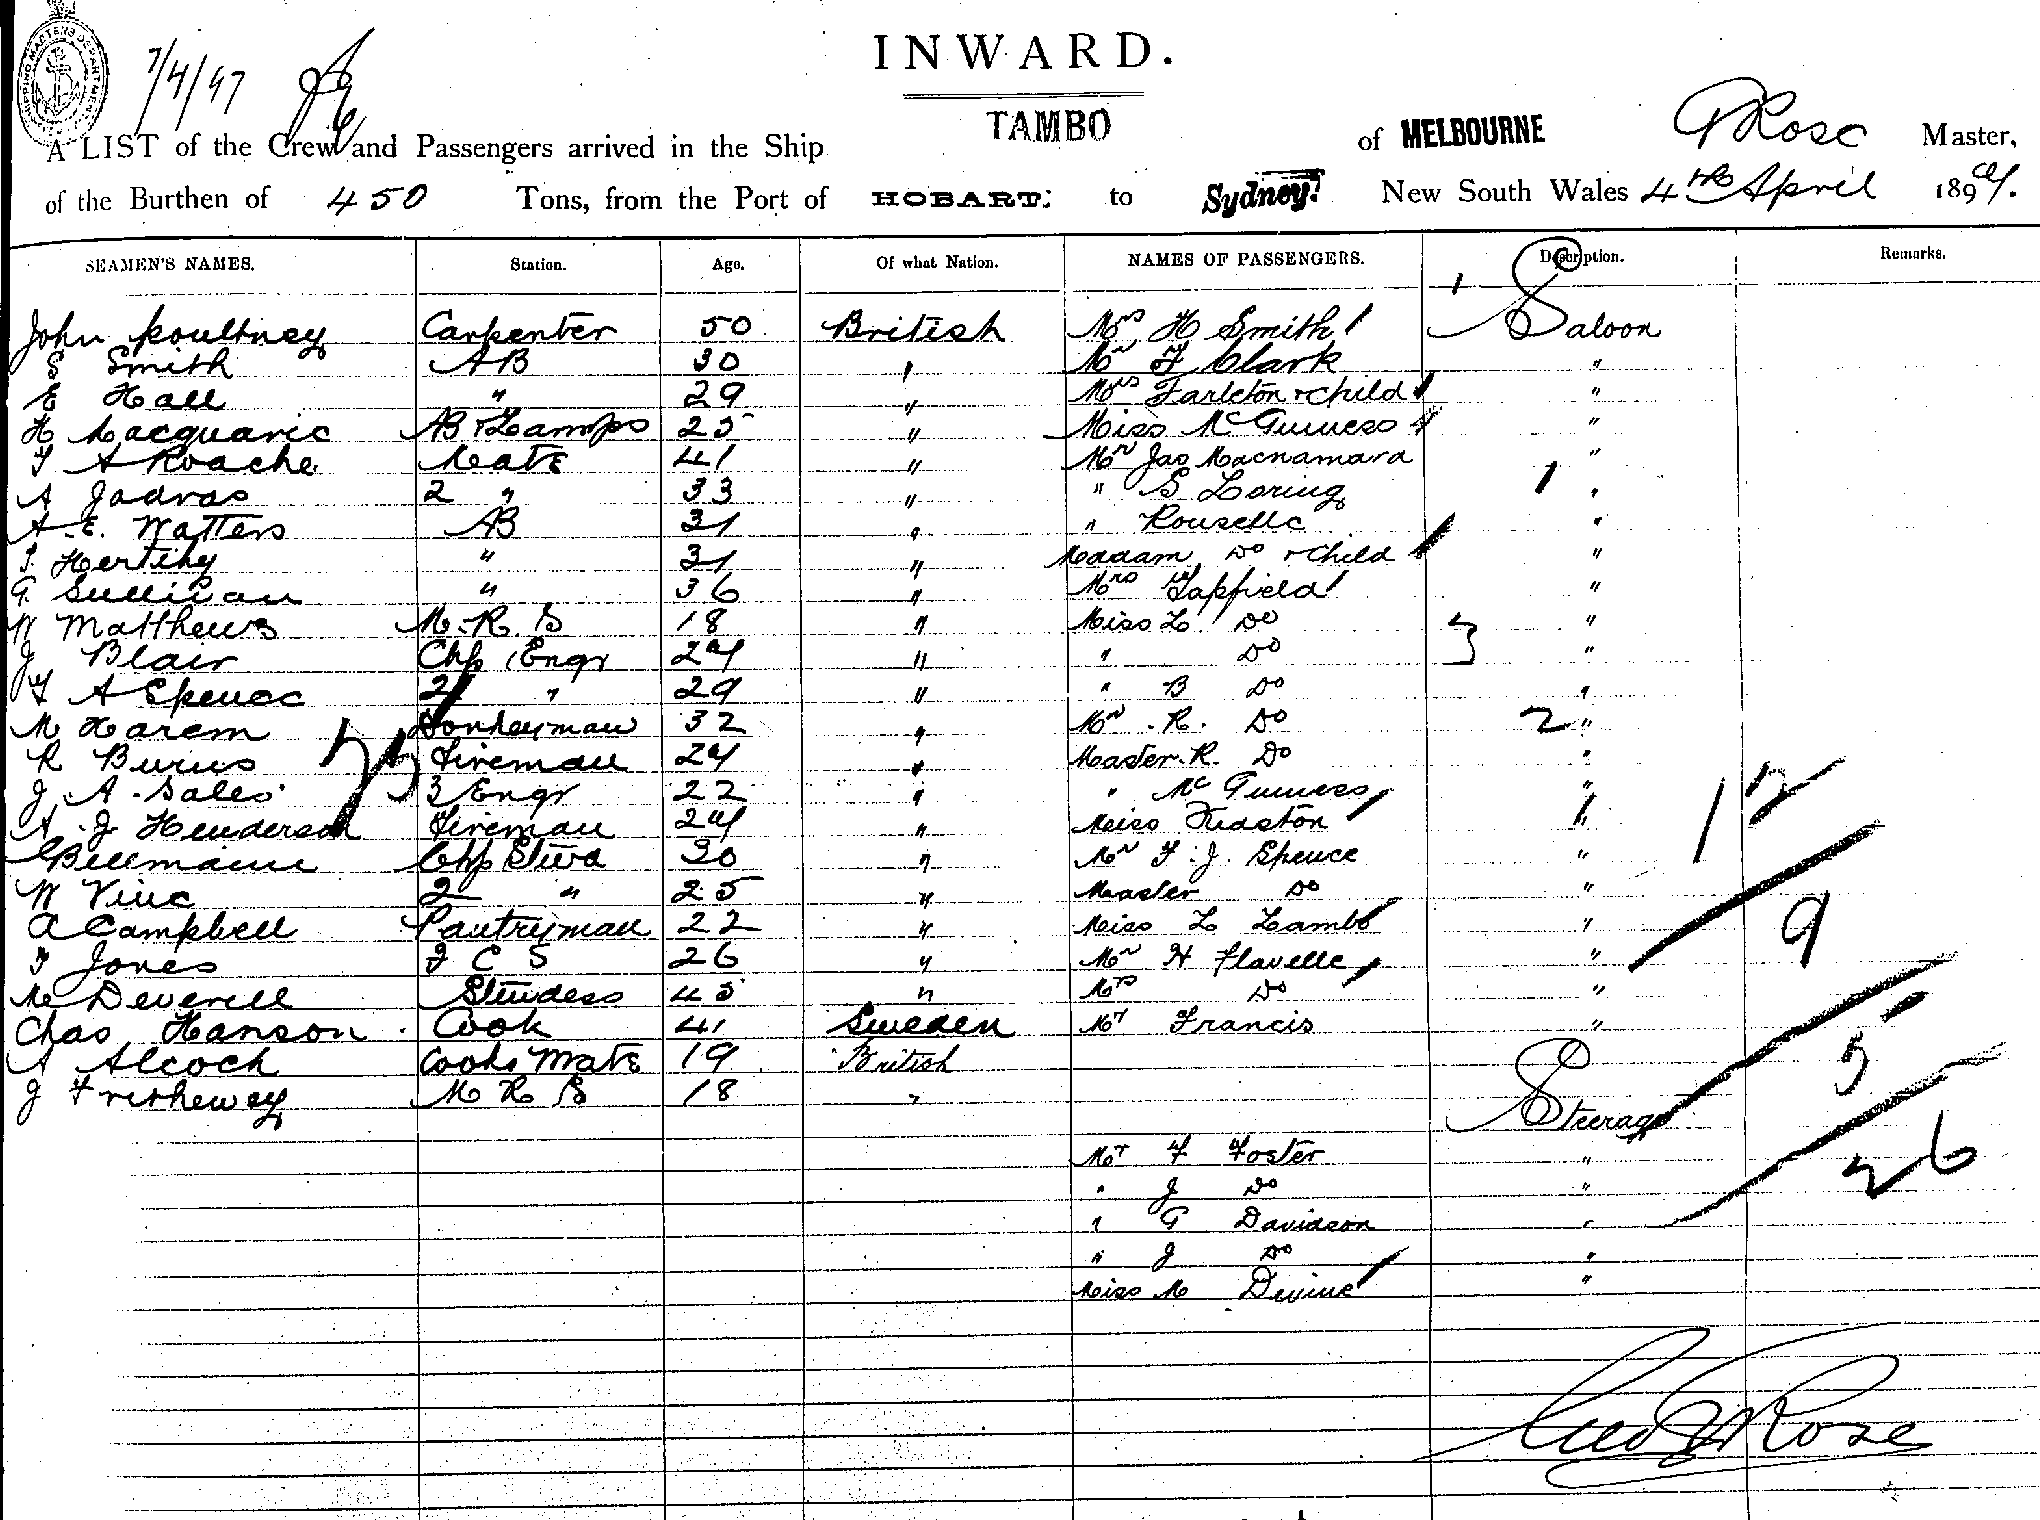 SHIPPING MASTERS DEPARTMENT
7/4/97
INWARD.
TAMBO
A LIST of the Crew and Passengers arrived in the Ship of MELBOURNE Rose Master,
of the Burthen of 450 Tons, from the Port of HOBART. to Sydney. New South Wales 4th April 189
SEAMEN'S NAMES. Station. Age. Of what Nation. NAMES OF PASSENGERS. Description. Remarks.
1
John Poultney Carpenter 50 British Mrs H Smith Saloon
S Smith AB 30 " Mr F Clark "
E Hall " 29 " Mrs Tarleton + Child "
H Macquarie AB + Lamps 25 " Miss McGuiness "
F A Roache Mate 41 " Mr Jas Macnamara "
A Jadras 2 " 33 " " S Loring 1 "
A. E. Watters AB 31 " " Rouselle "
Hertihy " 31 " Madam Do + Child "
G Sullivan " 36 " Mrs Tapfield "
W Matthews M. R. S 18 " Miss L Do 3 "
J Blair Chf Engr 24 " " Do "
F A Spence 2 " 29 " " B Do "
M Harem Donkeyman 32 " Mr R. Do 2 "
R Burns Fireman 24 " Master R. Do "
J. A. Sales 3 Engr 22 " " McGuiness " 12
A. J Henderson Fireman Miss "
Bellmaine Chf Stwd 30 " Mr F. J. Spence "
W Vine 2 " 25 " Master Do "
A Campbell Pantryman 22 " Miss L Lamb " 9
F Jones F C S 26 " Mr H Flavelle "
M Deverell Stewdess 45 " Mrs Do "
Chas Hanson Cook 41 Sweden Mr Francis "
A Alcock Cooks Mate 19 British 5
J Fretheway M R S 18 " Steerage
Mr F Foster " 26
" J Do "
" G Davidson "
" J Do "
Miss M Devine "
Rose